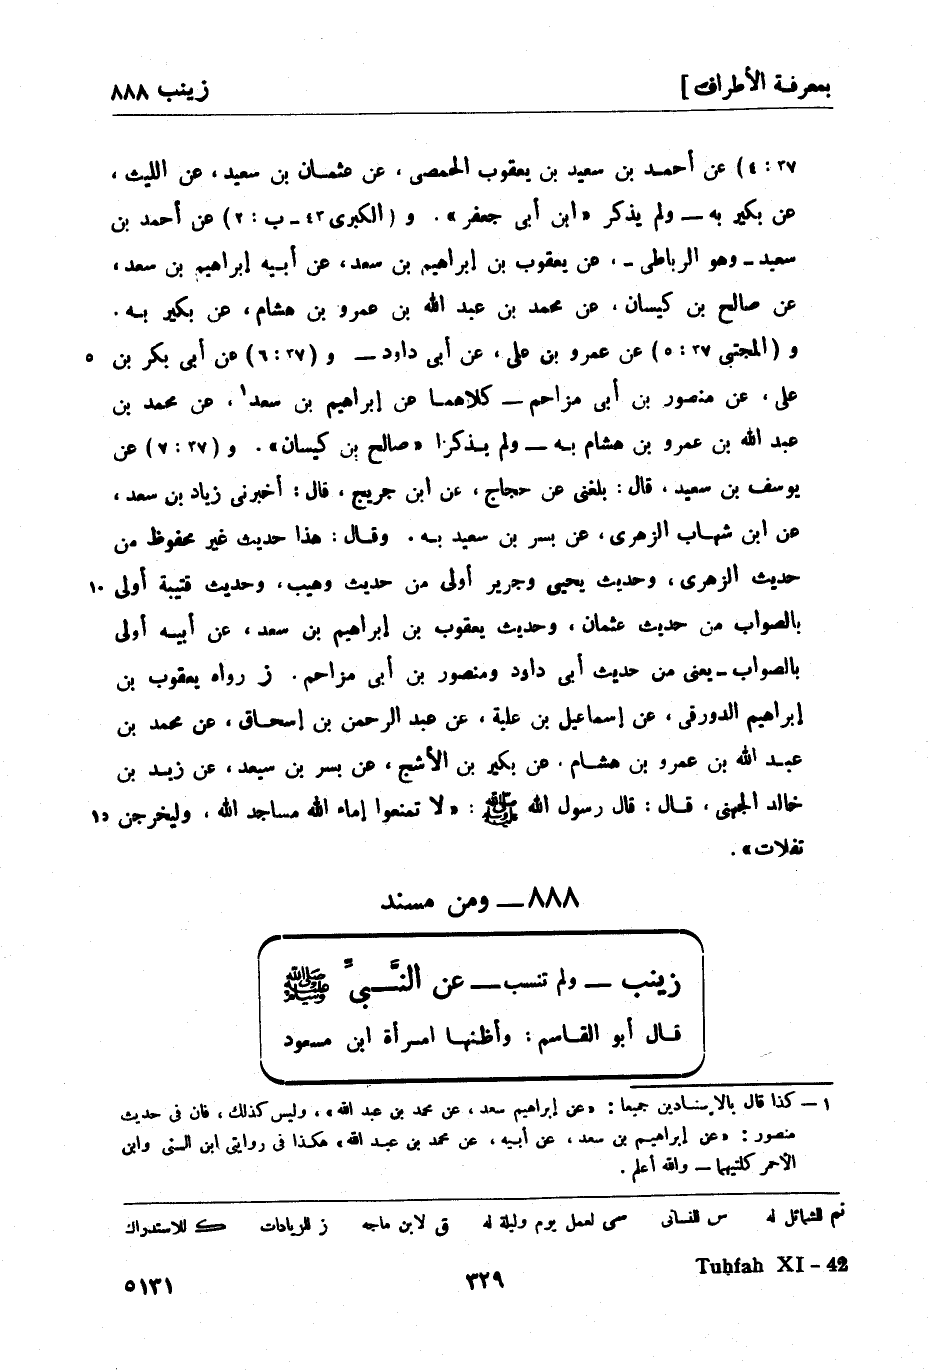 بمعرفة الأطراف ] زينب ٨٨٨
٣٧ : ٤) عن أحمد بن سعيد بن يعقوب الحمصى ، عن عثمان بن سعيد ، عن الليث ،
عن بكير به ــ ولم يذكر «ابن أبى جعفر» . و (الكبرى ٤٣ ـ ب : ٢) عن أحمد بن
سعيد ـ وهو الرباطى ـ ، عن يعقوب بن إبراهيم بن سعد ، عن أبيه إبراهيم بن سعد ،
عن صالح بن كيسان ، عن محمد بن عبد الله بن عمرو بن هشام ، عن بكير به .
و (المجتبى ٣٧ : ٥) عن عمرو بن على ، عن أبى داود ــ و (٣٧ : ٦) عن أبى بكر بن ٥
على ، عن منصور بن أبى مزاحم ــ كلاهما عن إبراهيم بن سعد١ ، عن محمد بن
عبد الله بن عمرو بن هشام به ــ ولم يذكرا «صالح بن كيسان» . و (٣٧ : ٧) عن
يوسف بن سعيد ، قال : بلغنى عن حجاج ، عن ابن جريج ، قال : أخبرنى زياد بن سعد ،
عن ابن شهاب الزهرى ، عن بسر بن سعيد به . وقال : هذا حديث غير محفوظ من
حديث الزهرى ، وحديث يحيى وجرير أولى من حديث وهيب ، وحديث قتيبة أولى ١٠
بالصواب من حديث عثمان ، وحديث يعقوب بن إبراهيم بن سعد ، عن أبيه أولى
بالصواب ـ يعنى من حديث أبى داود ومنصور بن أبى مزاحم . ز رواه يعقوب بن
إبراهيم الدورقى ، عن إسماعيل بن علية ، عن عبد الرحمن بن إسحاق ، عن محمد بن
عبد الله بن عمرو بن هشام . عن بكير بن الأشج ، عن بسر بن سيعد ، عن زيد بن
خالد الجهنى ، قال : قال رسول الله ﷺ : «لا تمنعوا إماء الله مساجد الله ، وليخرجن ١٥
تفلات» .
٨٨٨ ــ ومن مسند
زينب ــ ولم تنسب ــ عن النَّبىِّ ﷺ
قال أبو القاسم : وأظنها امرأة ابن مسعود
١ ــ كذا قال بالإسنادين جميعا : «عن إبراهيم سعد ، عن محمد بن عبد الله» ، وليس كذلك ، فان فى حديث
منصور : «عن إبراهيم بن سعد ، عن أبيه ، عن محمد بن عبد الله» هكذا فى روايتى ابن السنى وابن
الأحمر كلتيهما ــ والله أعلم .
تم للشمائل له س للنسائى سى لعمل يوم وليلة له ق لابن ماجه ز للزيادات ك للاستدراك
Tuḥfah XI – 42
٣٢٩
٥١٣١